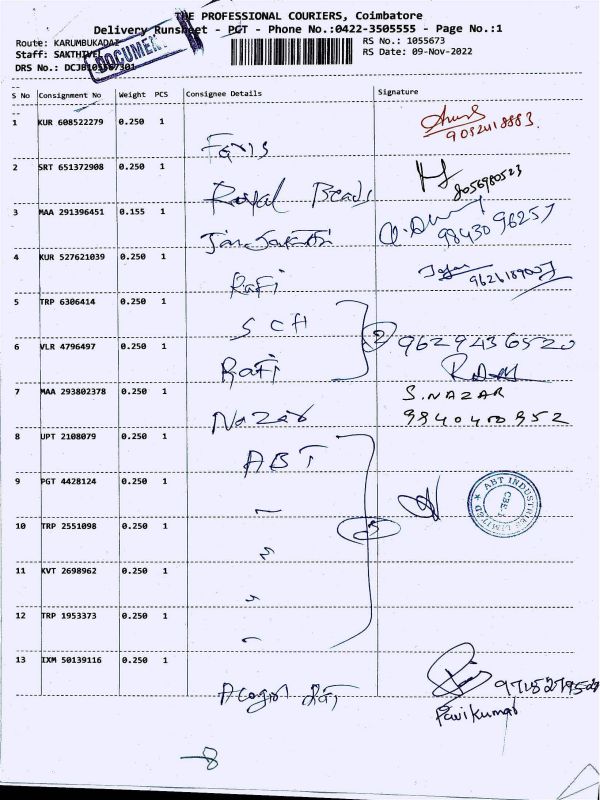 THE PROFESSIONAL COURIERS, Coimbatore
Delivery Runsheet - PGT - Phone No.:0422-3505555 - Page No.:1
Route: KARUMBUKADAI
RS No.: 1055673
Staff: SAKTHIVEL
RS Date: 09-Nov-2022
DRS No.:
DOCUMENT
S No Consignment No Weight PCS Consignee Details Signature
1 KUR 608522279 0.250 1
Faris
2 SRT 651372908 0.250 1
8056980523
Royal Beads
3 MAA 291396451 0.155 1
9843096257
4 KUR 527621039 0.250 1
Rafi
5 TRP 6306414 0.250 1
SCH
2 9629436520
6 VLR 4796497 0.250 1
Rafi
7 MAA 293802378 0.250 1 S.NAZAR
Nazar 9840400952
8 UPT 2108079 0.250 1
ABT
9 PGT 4428124 0.250 1
ABT INDUSTRIES LIMITED
CBE-1
10 TRP 2551098 0.250 1
5
11 KVT 2698962 0.250 1
12 TRP 1953373 0.250 1
13 IXM 50139116 0.250 1
Pavikumar
8